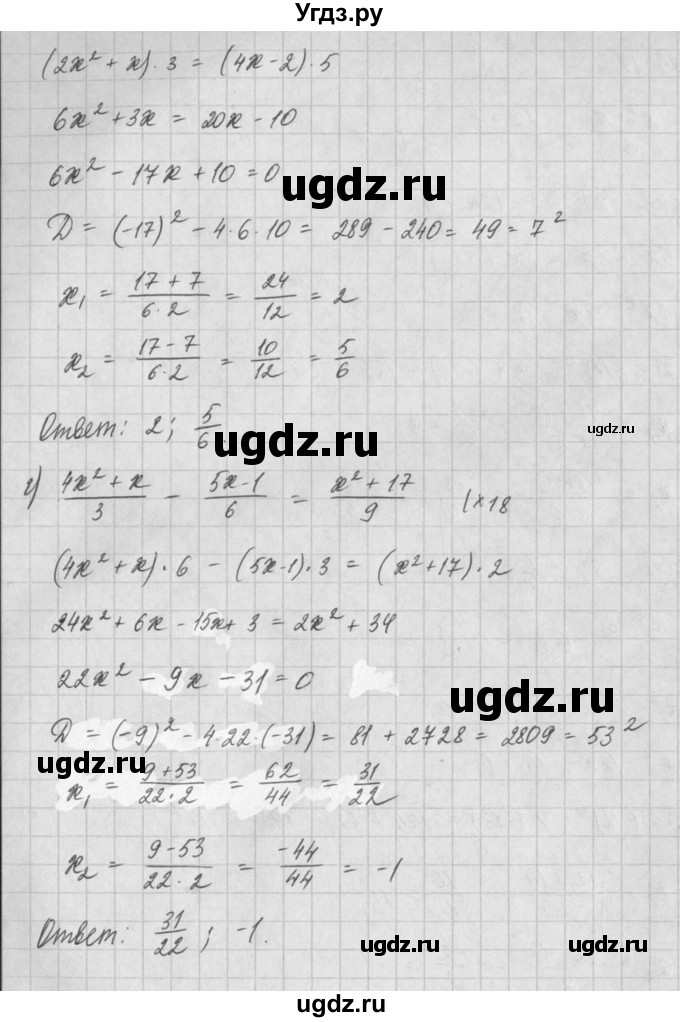 Угдз.ру
(2x² + x) · 3 = (4x - 2) · 5
6x² + 3x = 20x - 10
6x² - 17x + 10 = 0
ugdz.ru
D = (-17)² - 4 · 6 · 10 = 289 - 240 = 49 = 7²
x₁ = (17 + 7)/(6 · 2) = 24/12 = 2
x₂ = (17 - 7)/(6 · 2) = 10/12 = 5/6
Ответ: 2; 5/6
ugdz.ru
г) (4x² + x)/3 - (5x - 1)/6 = (x² + 17)/9 | × 18
(4x² + x) · 6 - (5x - 1) · 3 = (x² + 17) · 2
24x² + 6x - 15x + 3 = 2x² + 34
22x² - 9x - 31 = 0
ugdz.ru
D = (-9)² - 4 · 22 · (-31) = 81 + 2728 = 2809 = 53²
ugdz.ru
x₁ = (9 + 53)/(22 · 2) = 62/44 = 31/22
x₂ = (9 - 53)/(22 · 2) = -44/44 = -1
Ответ: 31/22; -1.
ugdz.ru
ugdz.ru
ugdz.ru